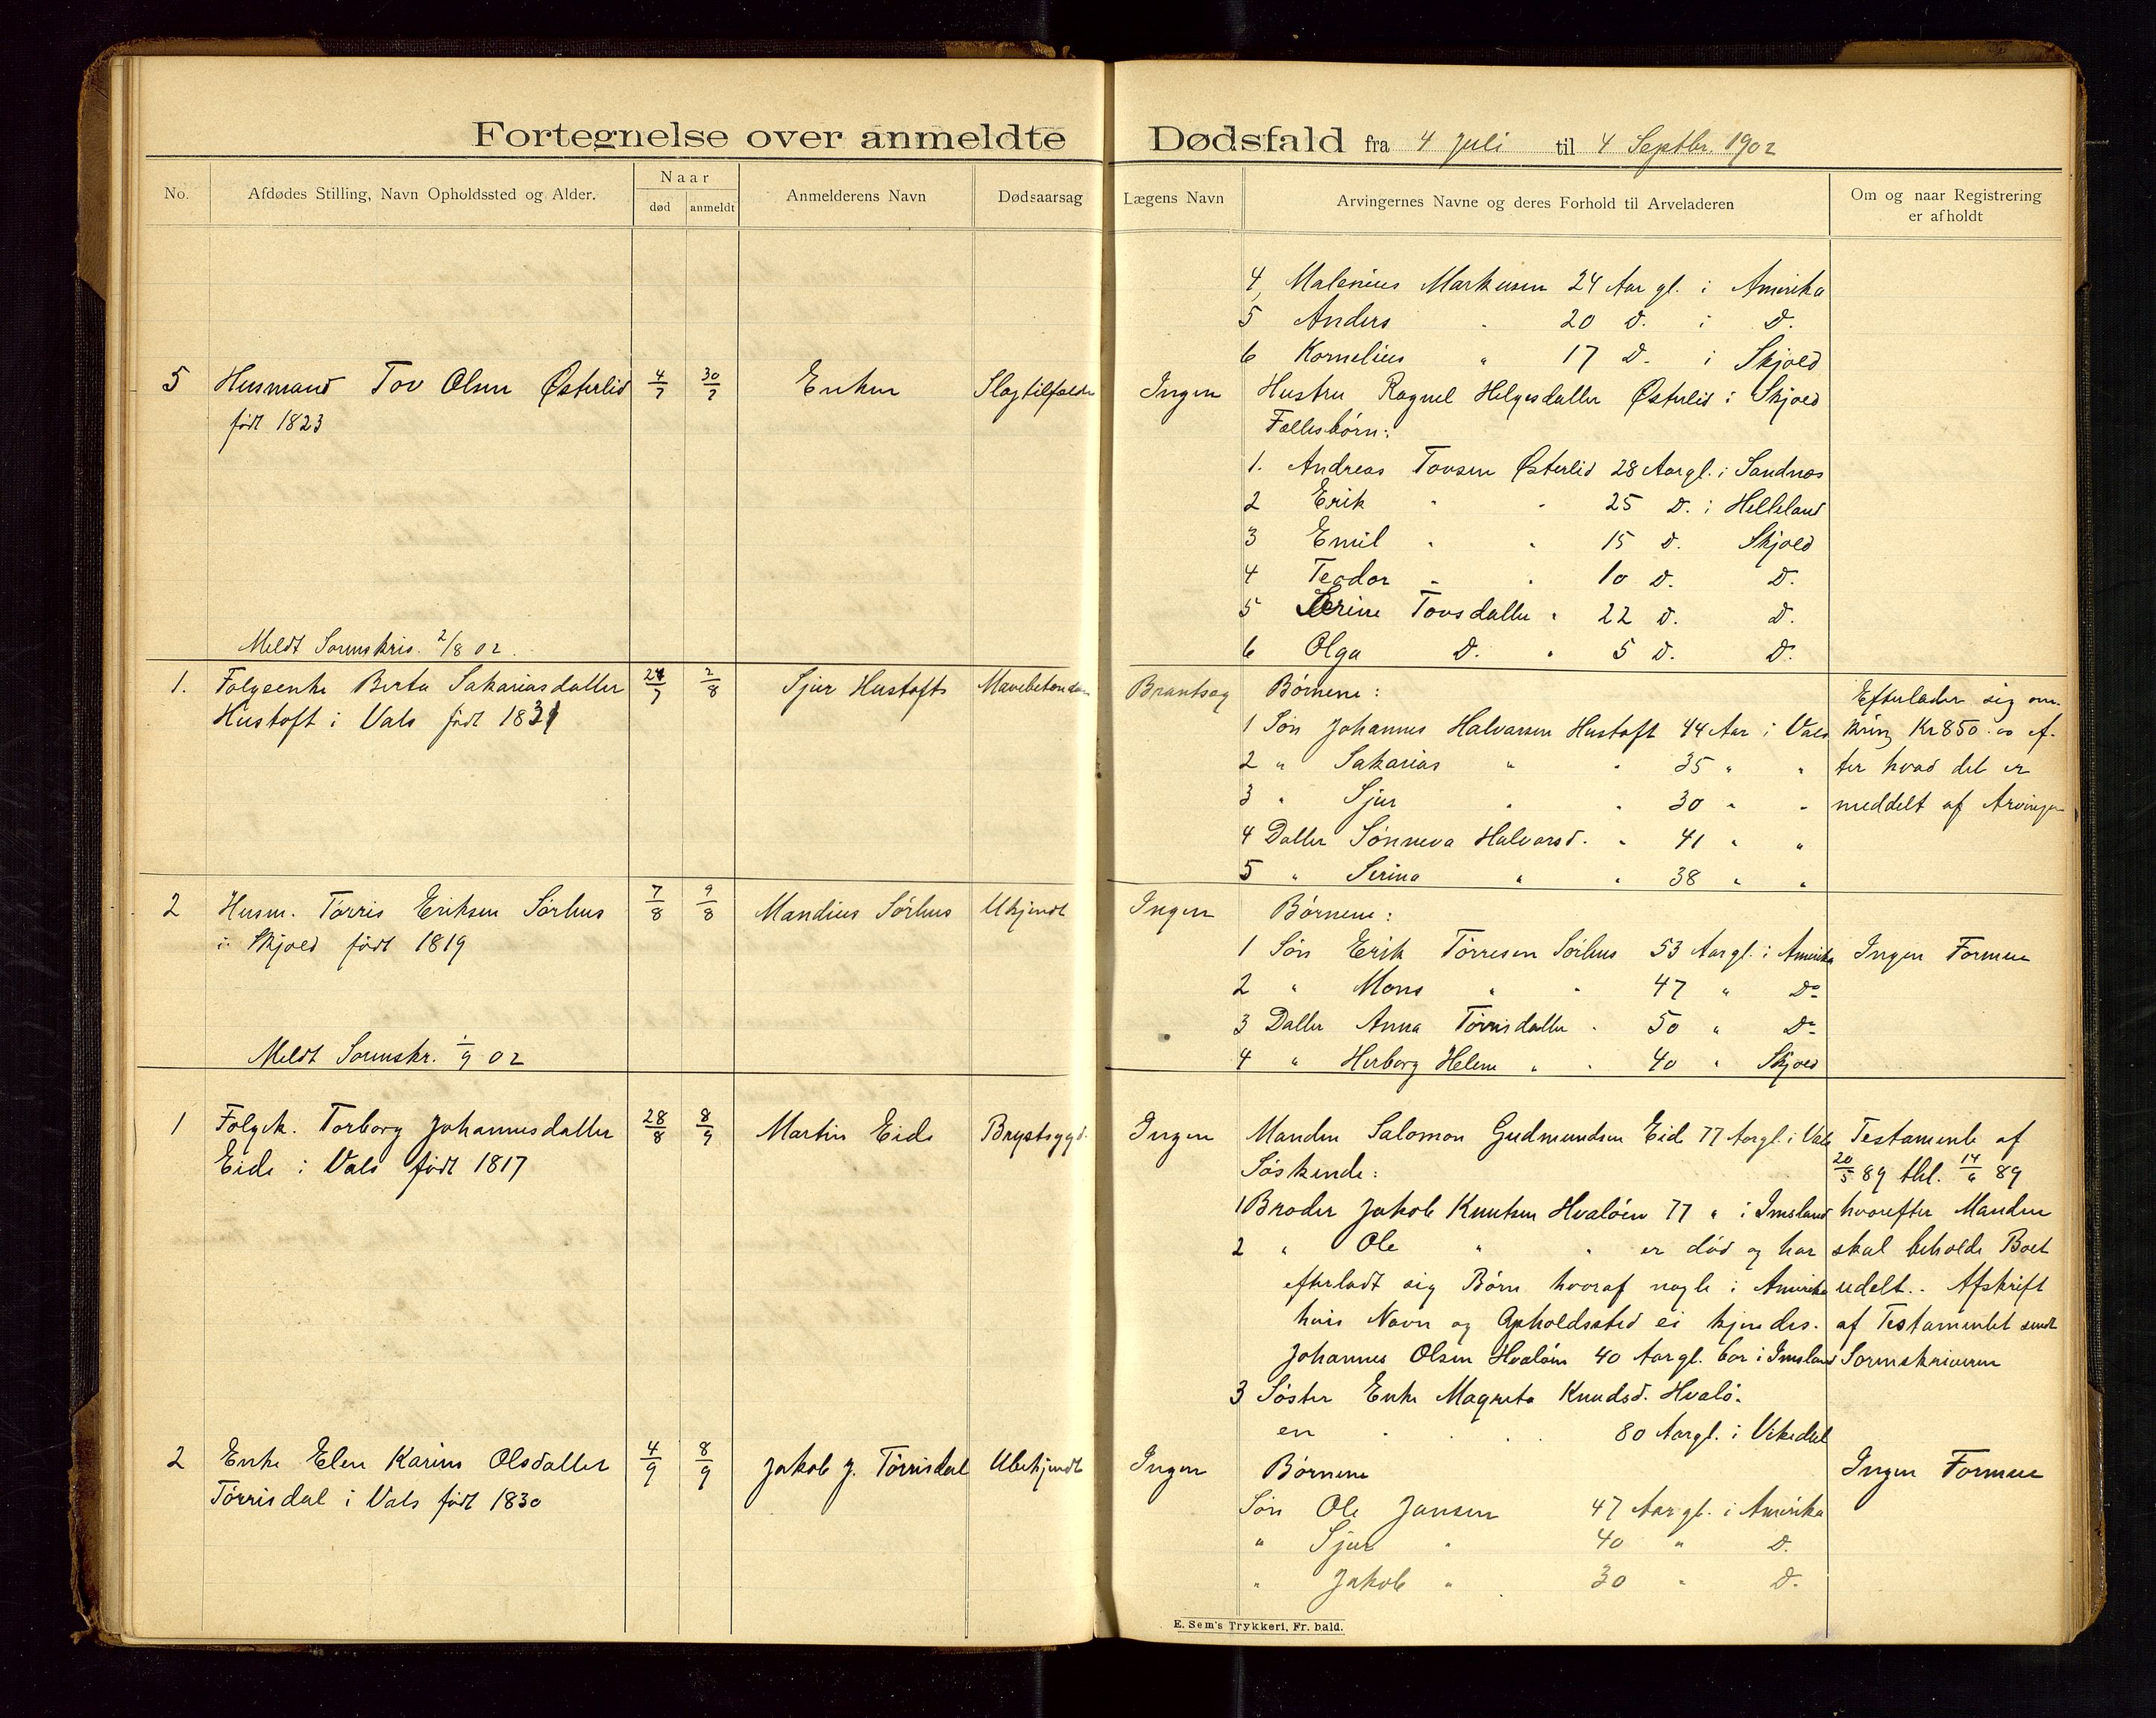 Fortegnelse over anmeldte Dødsfald fra 4 Juli til 4 Septbr. 1902
No.
Afdødes Stilling, Navn Opholdssted og Alder.
Naar
død
anmeldt
Anmelderens Navn
Dødsaarsag
Lægens Navn
Arvingernes Navne og deres Forhold til Arveladeren
Om og naar Registrering
er afholdt
4, Malenius Markusen 24 Aar gl. i Amirika
5 Anders " 20 D. i D.
6 Kornelius " 17 D. i Skjold
5 Husmand Tov Olsen Østerlid 4/7 30/7 Enken Slagtilfælde Ingen Hustru Ragnel Helgesdatter Østerlid i Skjold
født 1823
Fællesbørn:
1. Andreas Tovsen Østerlid 28 Aar gl. i Sandnæs
2 Erik " " 25 D. i Helleland
3 Emil " " 15 D. Skjold
4 Teodor " " 10 D. D.
5 Serine Tovsdatter " 22 D. D.
6 Olga D. " 5 D. D.
Meldt Sorenskriv. 2/8 02.
1. Følgeenke Berta Sakariasdatter 24/7 2/8 Sjur Hustoft Brantsag Børnene:
Hustoft i Vats født 1831
1 Søn Johannes Halvorsen Hustoft 44 Aar i Vats
2 " Sakarias " " 35 " "
3 " Sjur " " 30 " "
4 Datter Sønneva Halvorsd. " 41 " "
5 " Serina " " 38 " "
Efterlader sig om-
kring Kr 850.00 ef-
ter hvad det er
meddelt af Arvingen
2 Husm. Tørris Eriksen Sørhus 7/8 9/8 Mandius Sørhus Ukjendt Ingen Børnene:
i Skjold født 1819
1 Søn Erik Tørresen Sørhus 53 Aar gl. i Amirika Ingen Formue
2 " Mons " " 47 " Do
3 Datter Anna Tørrisdatter " 50 " Do
4 " Herborg Helene " " 40 " Skjold
Meldt Sorenskr. 1/9 02
1 Følgek. Torborg Johannesdatter 28/8 8/9 Martin Eide Brystsygd. Ingen Manden Salomon Gudmundsen Eid 77 Aar gl. i Vats
Eide i Vats født 1817
Søskende:
1 Broder Jakob Knutsen Hvaløen 77 " i Imsland
2 " Ole " " er død og har
efterladt sig Børn hvoraf nogle i Amirika
hvis Navn og Opholdssted ei kjendes.
Johannes Olsen Hvaløen 40 Aar gl. bor i Imsland
3 Søster Enke Magreta Knudsd. Hvalø-
en 80 Aar gl. i Vikedal
Testamente af
20/5 89 thl. 14/6 89
hvorefter Manden
skal beholde Boet
udelt. Afskrift
af Testamentet sendt
Sorenskriveren
2 Enke Elen Karine Olsdatter 4/9 8/9 Jakob J. Tørrisdal Ubekjendt Ingen Børnene Ingen Formue
Tørrisdal i Vats født 1830
Søn Ole Jansen 47 Aar gl. i Amirika
" Sjur " 40 " D.
" Jakob " 30 " D.
E. Sem's Trykkeri, Fr. hald.